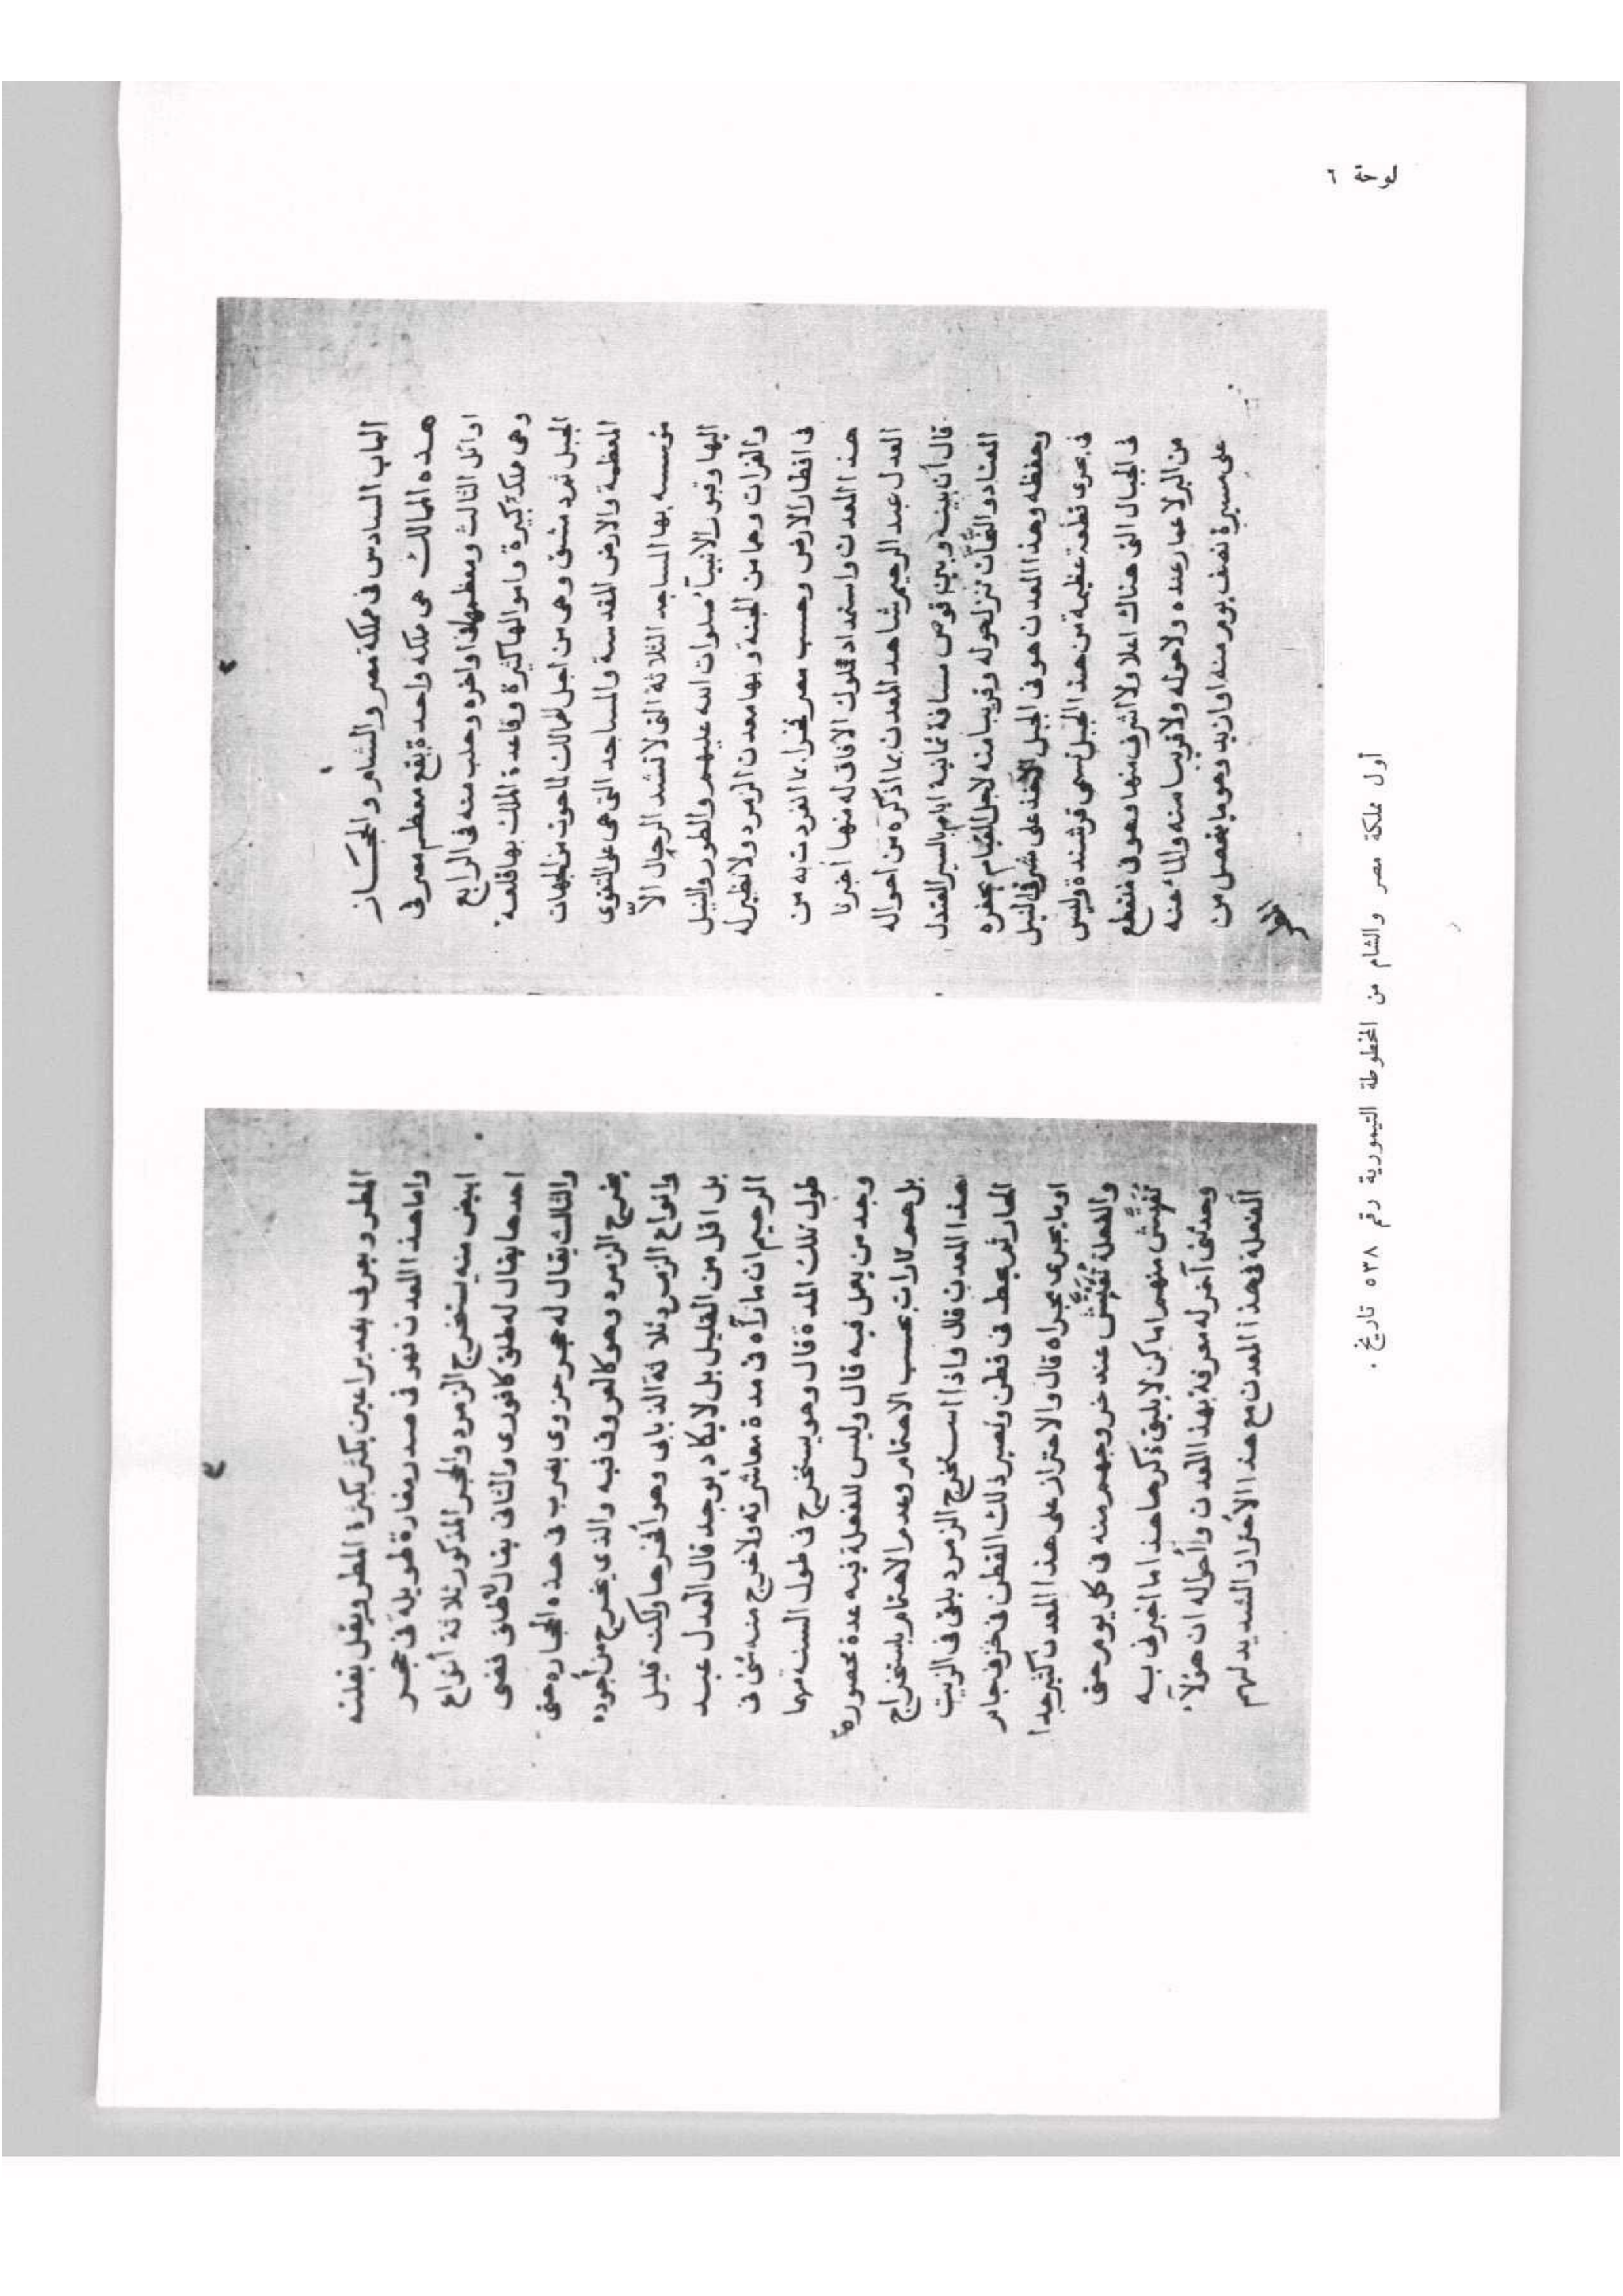 لوحة ٦
٢
الباب السادس فى مملكة مصر والشام والحجاز
هذه الممالك هى مملكة واحدة يقع معظم مصر فى
اوائل الثالث ومعظمها فى اواخره وحلب منه فى الرابع
وهى مملكة كبيرة واموالها كثيرة وقاعدة الملك بها قلعة
الجبل ثم دمشق وهى من اجل الممالك لما حوت من الجهات
المعظمة والارض المقدسة والمساجد التى هى على التقوى
مؤسسه بها المساجد الثلاثة التى لا تشد الرحال الاّ
اليها وقبور الانبيآء صلوات الله عليهم والطور والنيل
والفرات وهما من الجنة وبها معدن الزمرد ولا نظير له
فى اقطار الارض وحسب مصر فخرا بما انفردت به من
هذا المعدن واستمداد ملوك الافاق له منها اخبرنا
العدل عبد الرحيم شاهد المعدن بما اذكره من احواله
قال أن بينه وبين قوص مسافة ثمانية ايام بالسير المعتدل
والبجاة تنزل حوله وقريبا منه لاجل القيام بحفره
وحفظه وهذا المعدن هو فى الجبل الآخذ على شرقى النيل
فى بحرى قطعة عظيمة من هذا الجبل تسمى قرشندة وليس
فى الجبال التى هناك اعلا ولا اشرف منها وهو فى منقطع
من البر لا عمار عنده ولا حوله ولا قريبا منه والمآء عنه
على مسيرة نصف يوم منه او ازيد وهو ما يتحصل من
المطر
٣
المطر ويعرف بغدير اعين يكثر بكثرة المطر ويقل بقلته
واما هذا المعدن فهو فى صدر مغارة طويلة فى حجر
ابيض منه يستخرج الزمرد والحجر المذكور ثلاثة أنواع
احدها يقال له طلق كافورى والثانى يقال له طلق فضى
والثالث يقال له حجر حروى يضرب فى هذه الحجاره حتى
يخرج الزمرد وهو كالعروق فيه والذى يخرج من أجوده
وانواع الزمرد ثلاثة الذبابى وهو أفخرها ولكنه قليل
بل اقل من القليل بل لا يكاد يوجد قال العدل عبد
الرحيم ان ما رآه فى مدة مباشرته ولا خرج منه شئ فى
طول تلك المدة قال وهو يستخرج فى طول السنه مهما
وجد من يعمل فيه قال وليس للفعلة فيه عدة محصورة
بل هم تارات بحسب الاهتمام وعدم الاهتمام باستخراج
هذا المعدن قال واذا استخرج الزمرد يلقى فى الزيت
الحار ثم يحط فى قطن ويصير ذلك القطن فى خرق خام
او ما يجرى مجراه قال والاحتراز على هذا المعدن كثير جدا
والفعلة تُفَتَّش عند خروجهم منه فى كل يوم حتى
تُفَتَّش منهم اماكن لا يليق ذكرها هذا ما اخبرنى به
وحدثنى آخر له معرفة بهذا المعدن وأحواله ان هؤلآء
الفعلة فى هذا المعدن مع هذا الأحتراز الشديد لهم
أول مملكة مصر والشام من المخطوطة التيمورية رقم ٥٣٨ تاريخ .